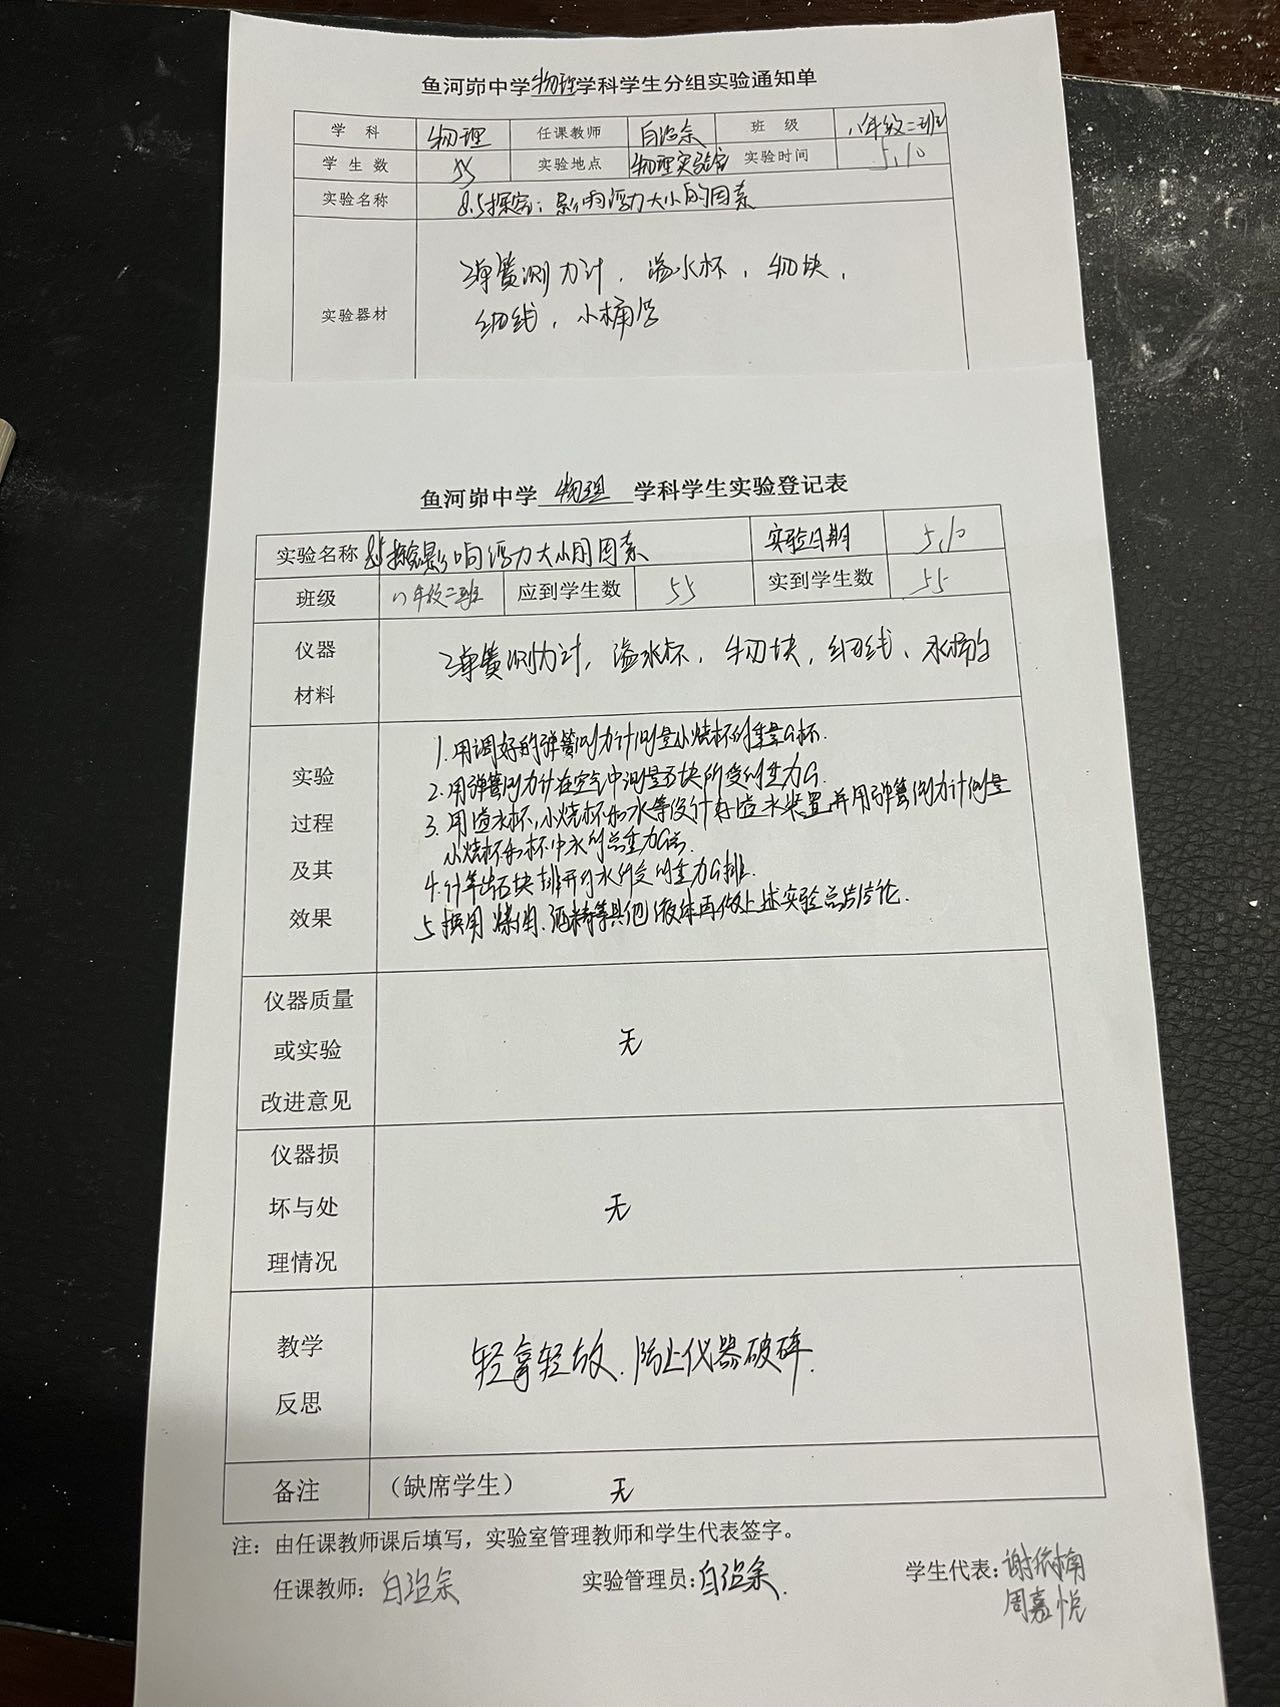 鱼河峁中学物理学科学生分组实验通知单
学科 物理 任课教师 白治余 班级 八年级二班
学生数 55 实验地点 物理实验室 实验时间 5.10
实验名称 8.5探究:影响浮力大小的因素
实验器材 弹簧测力计,溢水杯,物块,
细线,小桶等
鱼河峁中学 物理 学科学生实验登记表
实验名称 8.5探究影响浮力大小的因素 实验日期 5.10
班级 八年级二班 应到学生数 55 实到学生数 55
仪器材料 弹簧测力计,溢水杯,物块,细线,水桶等
实验过程及其效果
1.用调好的弹簧测力计测量小烧杯的重量G杯.
2.用弹簧测力计在空气中测量石块所受的重力G.
3.用溢水杯,小烧杯和水等设计好溢水装置,并用弹簧测力计测量
小烧杯和杯中水的总重力G总.
4.计算出石块排开的水所受的重力G排.
5.换用煤油.酒精等其他液体再做上述实验总结结论.
仪器质量或实验改进意见 无
仪器损坏与处理情况 无
教学反思 轻拿轻放.防止仪器破碎.
备注 (缺席学生) 无
注:由任课教师课后填写,实验室管理教师和学生代表签字。
任课教师:白治余 实验管理员:白治余. 学生代表:谢
周嘉悦